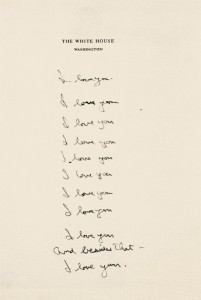 THE WHITE HOUSE
WASHINGTON
I love you
I love you
I love you
I love you
I love you
I love you
I love you
I love you
I love you
And besides that –
I love you.